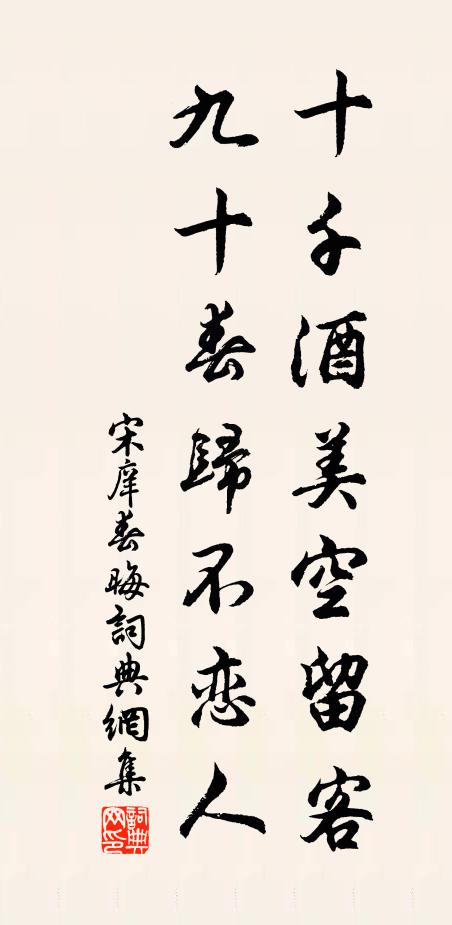 十千酒美空留客
九十春歸不恋人
宋庠春晦詞典網集
詞典網印